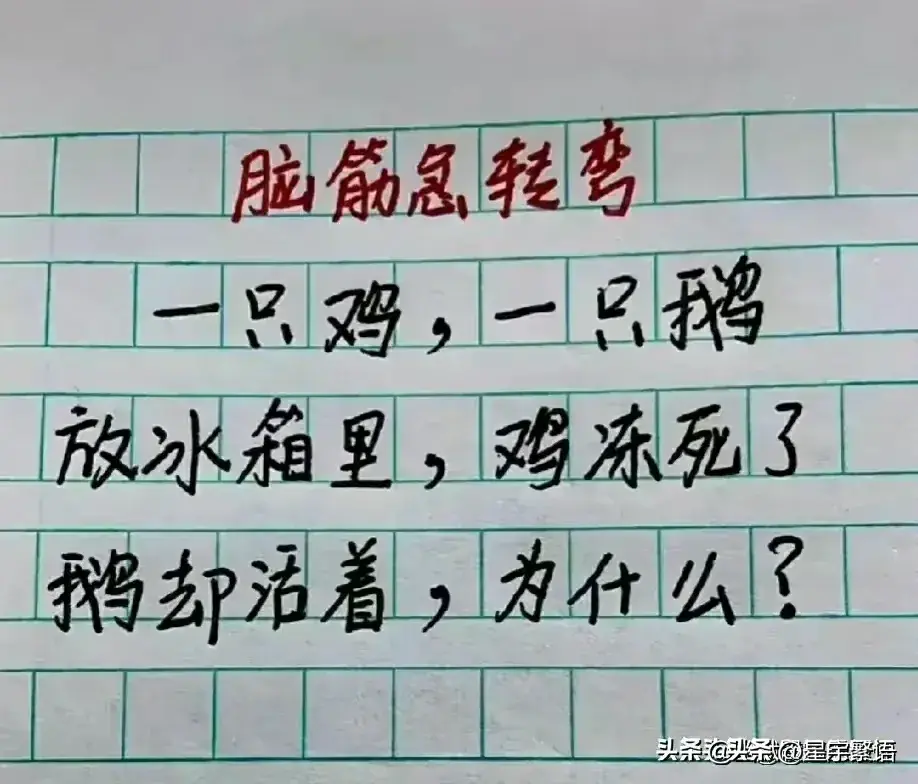 脑筋急转弯
一只鸡,一只鹅
放冰箱里,鸡冻死了
鹅却活着,为什么?
头条 @星宇繁语